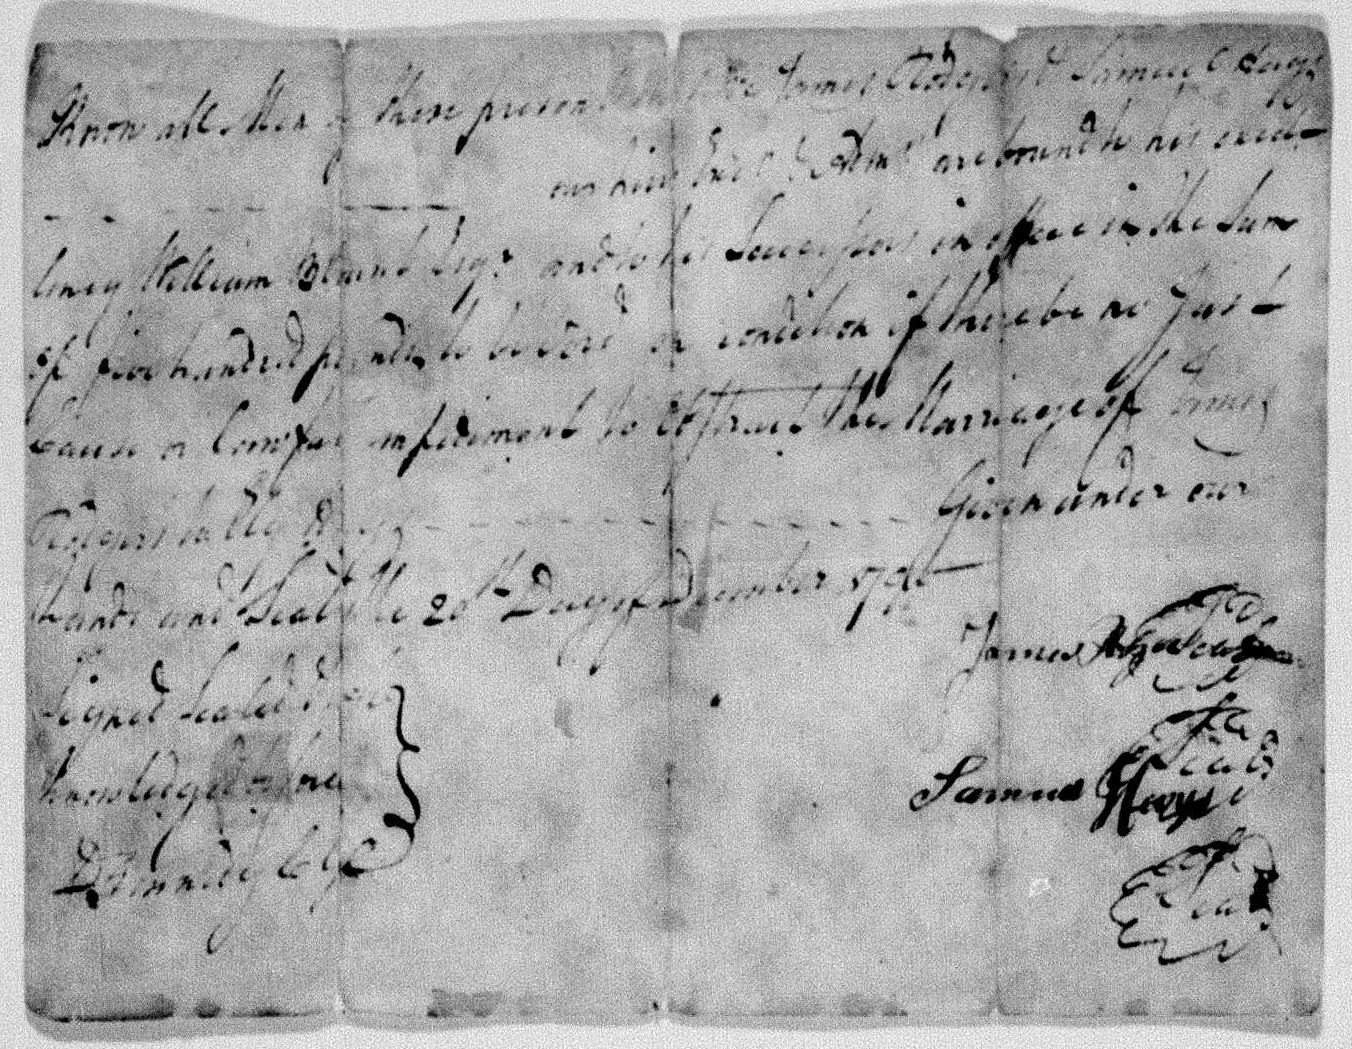 Know all Men by these presents that We James Rodgers & Samuel Hays
our heirs & Adms are bound to his excel-
lency William Blount Esqr and to his Successors in office in the Sum
of five hundred pounds to be void on condition if there be no Just
Cause or Lawful impediment to Obstruct the Marriage of James
Rodgers to Given under our
hands and Seals the 20th Day of December
Signed Sealed & ac
knowledged before
D Kennedy C
James
Seal
Samuel Hays
Seal
Seal